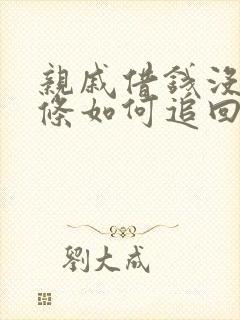 親戚借錢沒
條如何追回
劉大成